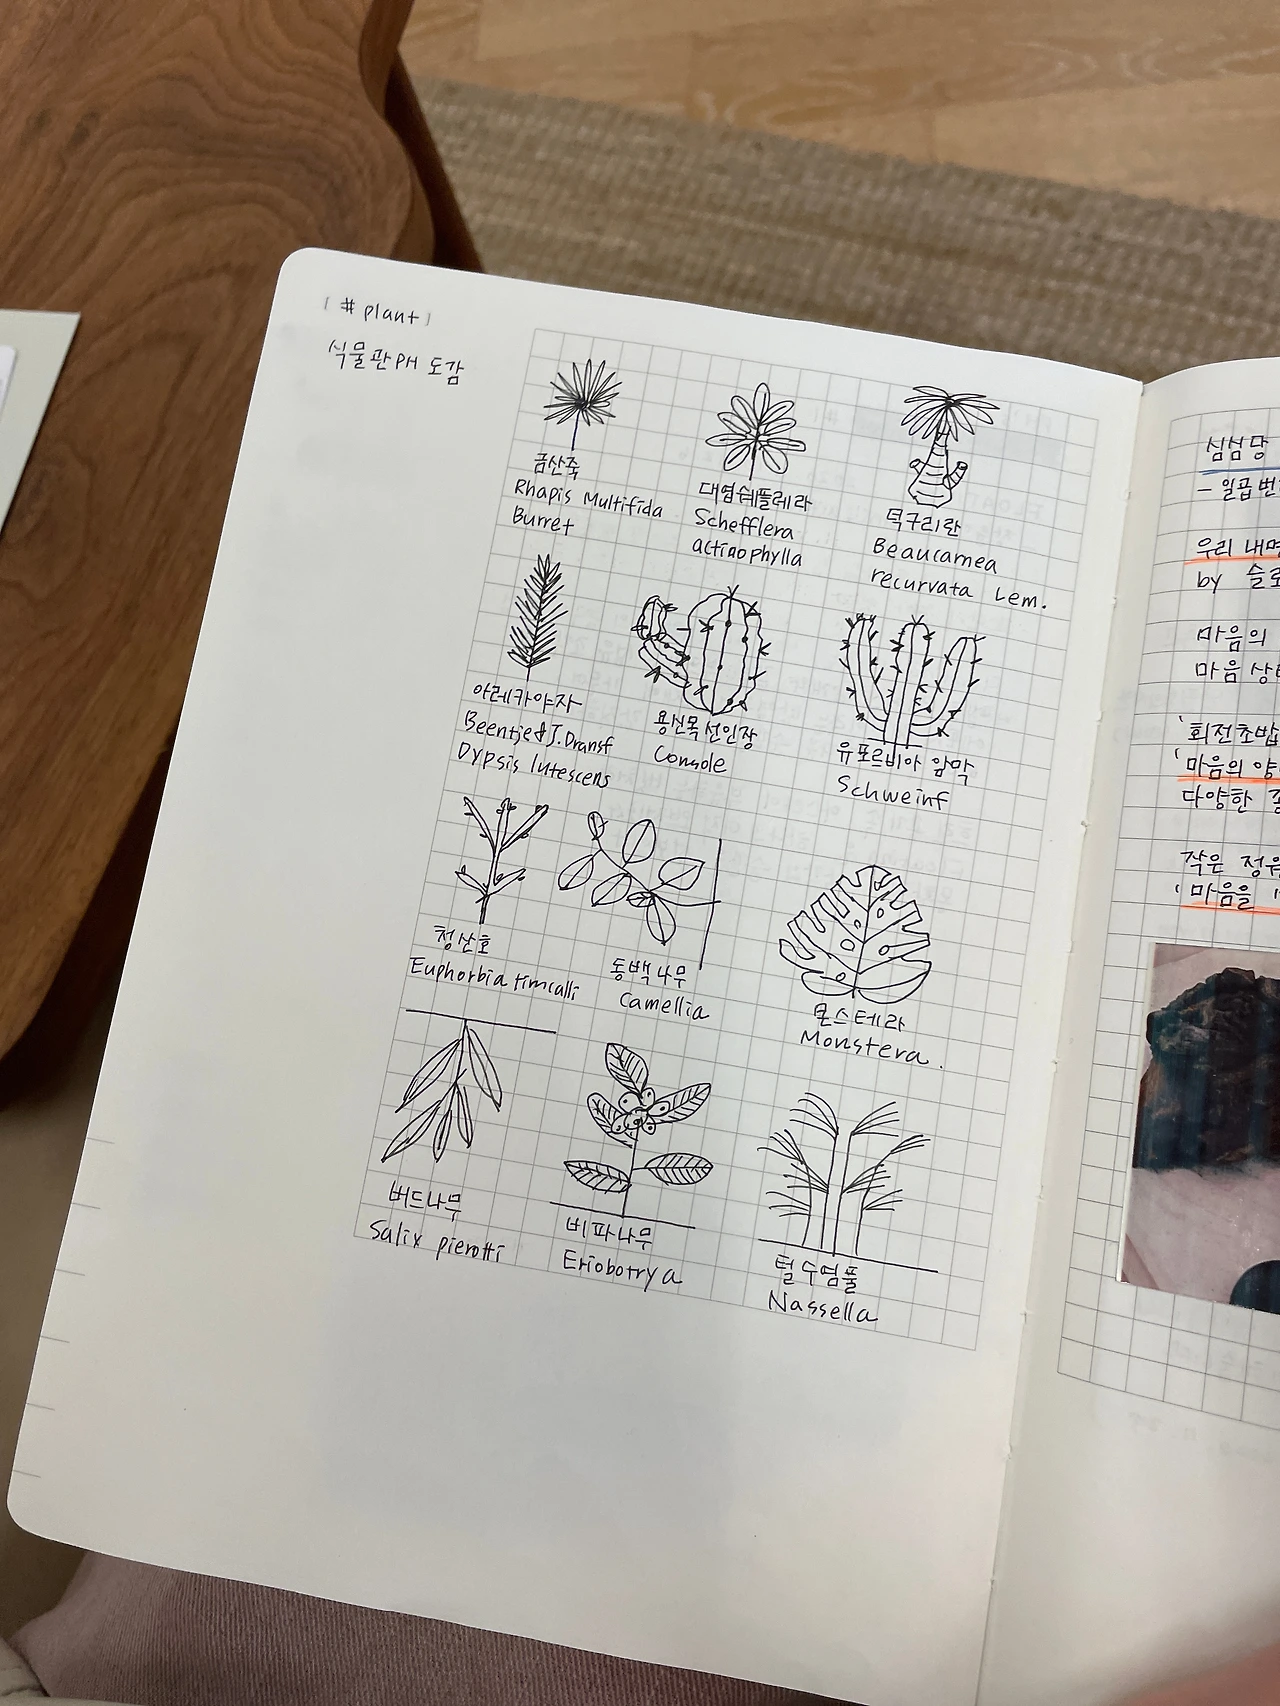 [ # plant ]
식물관PH 도감
금산죽
Rhapis Multifida
Burret
대엽쉐플레라
Schefflera
actinophylla
덕구리란
Beaucarnea
recurvata Lem.
아레카야자
Beentje & J.Dransf
Dypsis lutescens
용신목 선인장
Console
유포르비아 암막
Schweinf
청산호
Euphorbia tirucalli
동백나무
Camellia
몬스테라
Monstera.
버드나무
Salix pierotti
비파나무
Eriobotrya
털수염풀
Nassella
심심당
- 일곱번
우리 내면
by 슬로
마음의
마음 상
'회전초밥
'마음의 양
다양한
작은 정원
'마음을